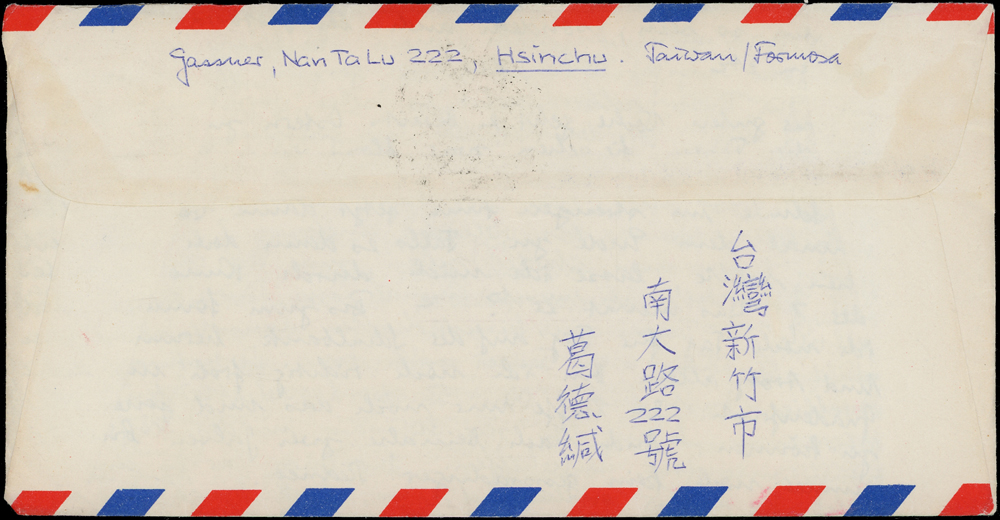 Gassner, Nan Ta Lu 222, Hsinchu. Taiwan/Formosa
台灣新竹市
南大路222號
葛德緘